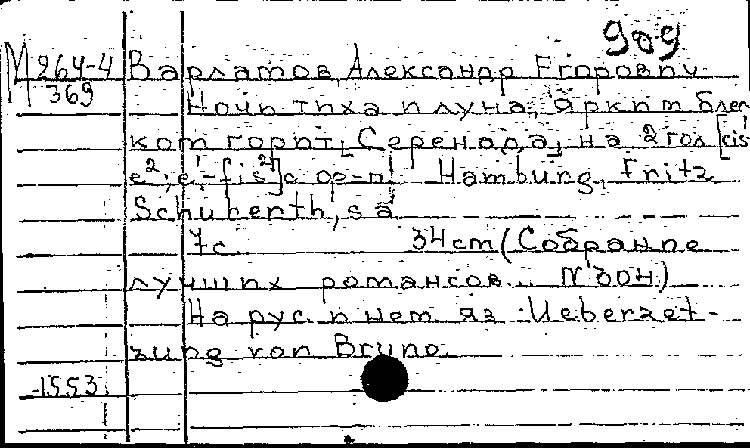 909
М 264-4
369
Варламов, Александр Егорович
Ночь тиха и луна, яркит блес
ком горит, [Серенада, на 2 гол [cis'
e²; e'-fis²] с ф-п] Hamburg, Fritz
Schuberth, s a
7с. 34cm (Собрание
лучших романсов... N 304)
На рус. и нем яз : Ueberzet-
zung von Bruno
1553